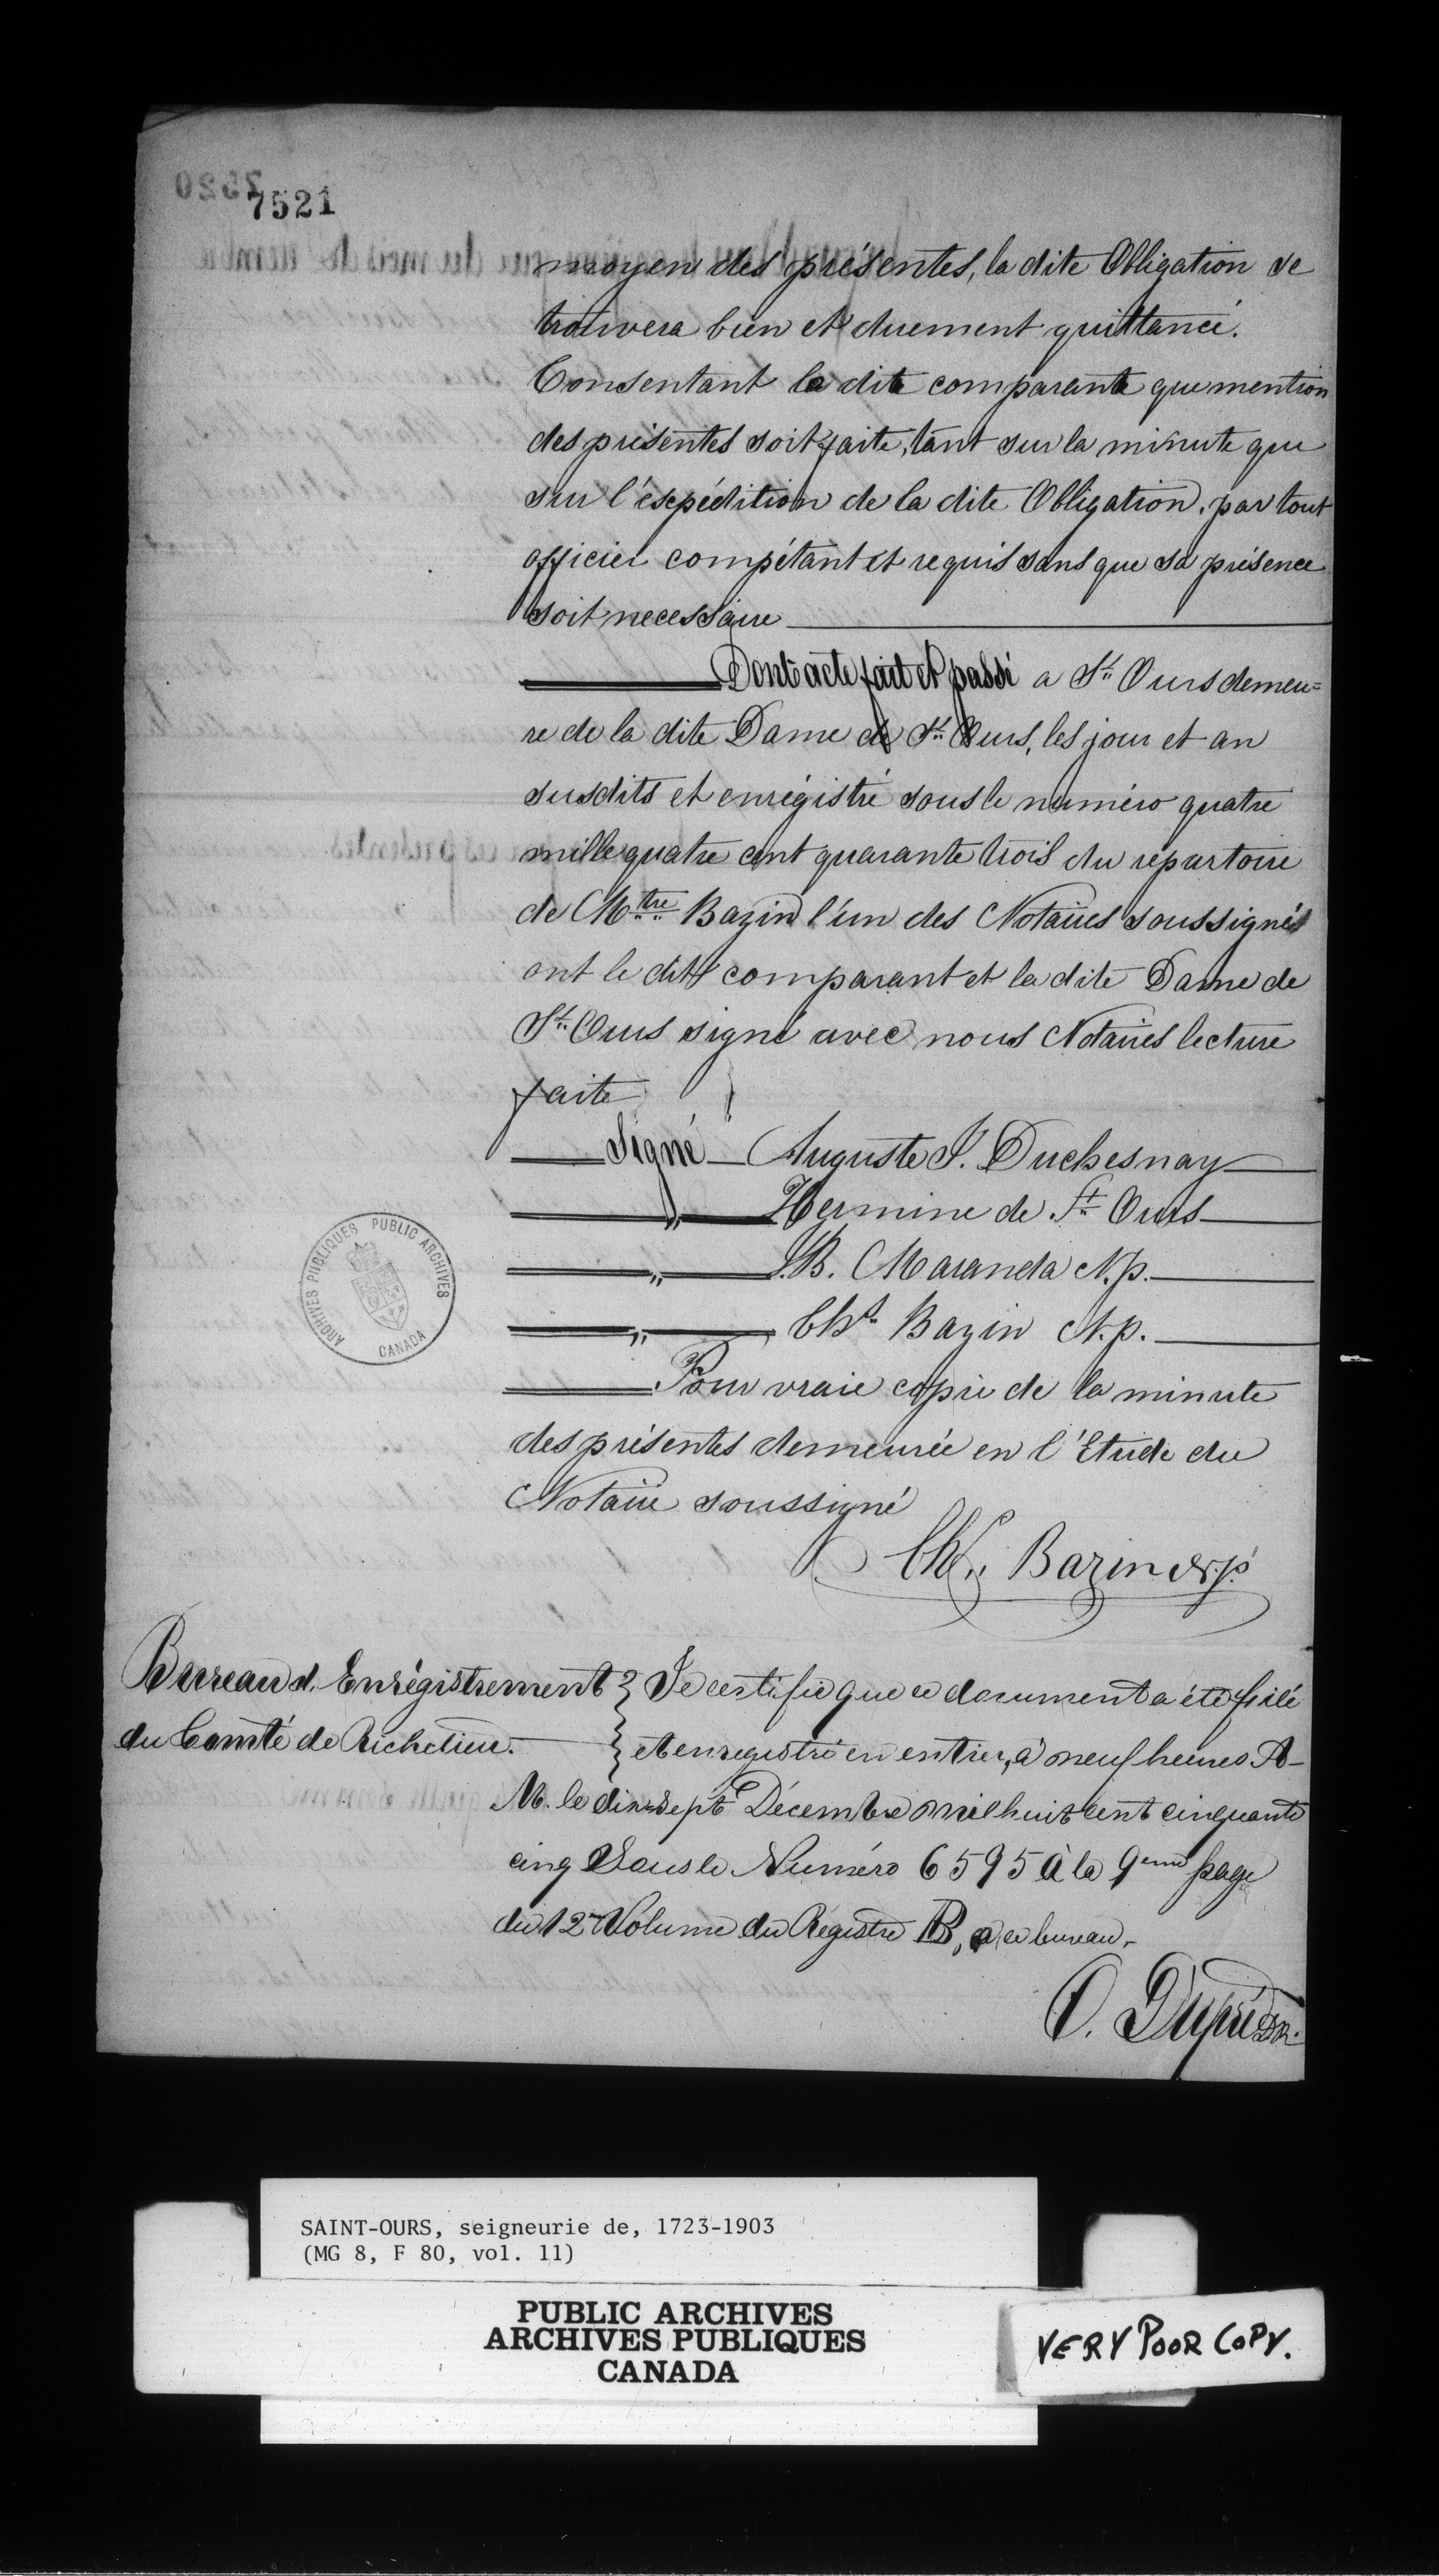 7520
7521
moyen des présentes, la dite Obligation se
trouvera bien et duement quittancé.
Consentant la dite comparante que mention
des présentes soit faite, tant sur la minute que
sur l'éxpédition de la dite Obligation, par tout
officier compétant et requis sans que sa présence
soit necessaire
Dont acte fait et passé a St. Ours demeu=
re de la dite Dame de St. Ours, les jour et an
susdits et enrégistré sous le numéro quatre
mille quatre cent quarante trois du repartoire
de Mtre Bazin l'un des Notaires soussignés
ont le dit comparant et la dite Dame de
St. Ours signé avec nous Notaires lecture
faite
Signé Auguste J. Duchesnay
" Hermine de St. Ours
" J.B. Maranda N.p.
" Chs. Bazin N.p.
Pour vraie copie de la minute
des présentes demeurée en l'Etude du
Notaire soussigné
Chs. Bazin N.p.
ARCHIVES PUBLIQUES PUBLIC ARCHIVES
CANADA
Bureau d'Enrégistrement } Je certifie que ce document a été filé
du Comté de Richelieu. } et enregistré en entier, à neuf heures A-
M. le dix-sept Décembre mil huit cent cinquante
cinq Sous le Numéro 6595 à la 9eme page
du 12me Volume du Régistre B, a ce bureau.
O. Dupré DR.
SAINT-OURS, seigneurie de, 1723-1903
(MG 8, F 80, vol. 11)
PUBLIC ARCHIVES
ARCHIVES PUBLIQUES
CANADA
VERY POOR COPY.